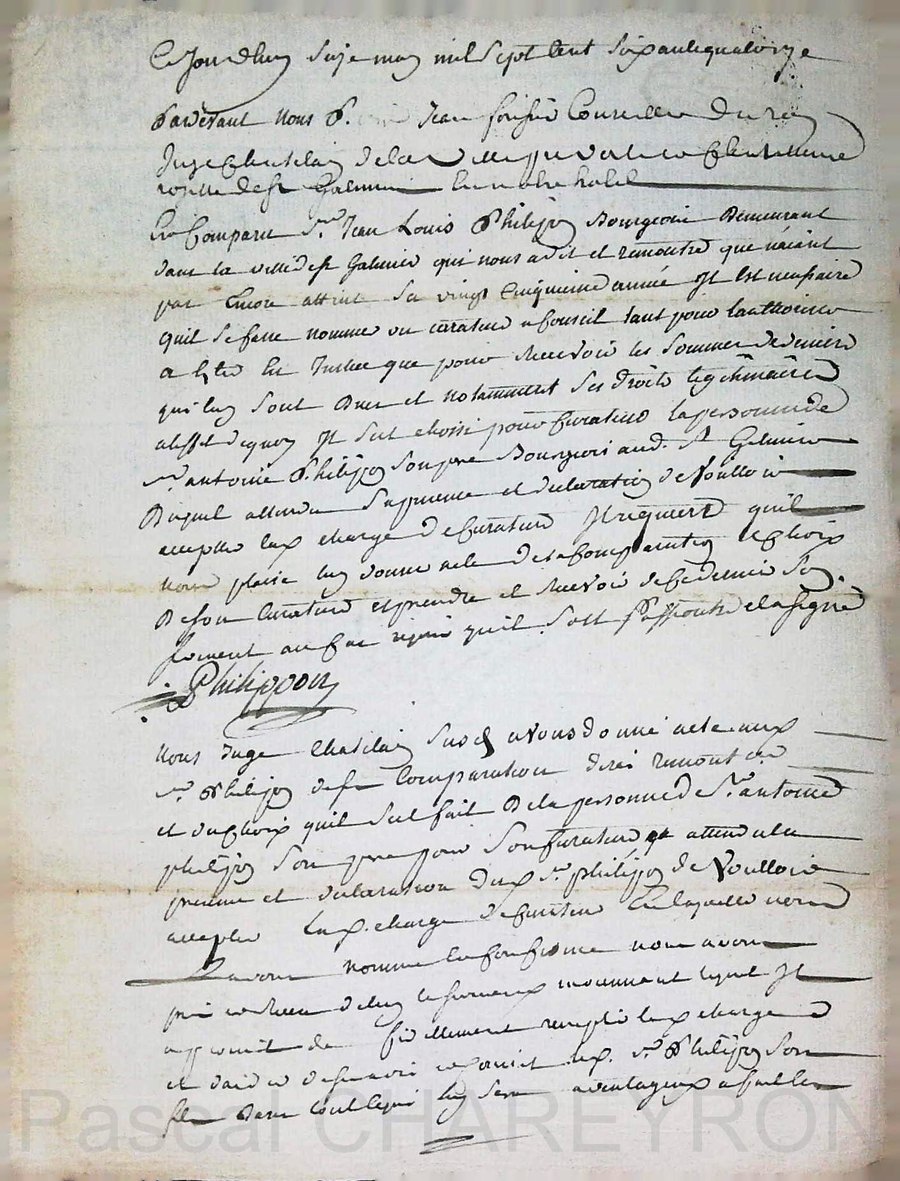 Ce Jourdhuy seize may mil sept cent soixante quatorze
Pardevant nous Jean Conseiller du roy
Juge Chatelain de la Ville prevoté et Chatellenie
royalle de St Galmier en notre hotel
En Comparu Sr. Jean Louis Philipon Bourgeois Demeurant
dans la ville de St Galmier qui nous a dit et remontré que n'aiant
pas Encore atteint sa vingt Cinquieme année Il est necessaire
quil se fasse nommer un curateur a Conseil tant pour lauthoriser
a Ester En Justice que pour Recevoir les Sommes de deniers
qui luy sont Dues et notamment ses droits legitimaires
aleffet dequoy Il fait choix pour Curateur la personne de
Sr. antoine Philipon son pere Bourgeois aud. St Galmier
Duquel attendu sa presence et declaration de Vouloir
accepter lad charge de Curateur Il requiert quil
nous plaise luy donner acte de sa Comparution et Choix
De son Curateur et prendre et Recevoir de Ce dernier Le
serment au Cas requis quil soit et a signé
Philippon
nous Juge Chatelain susd avons donné acte aux
Sr. Philipon de sa Comparution dires remontrces
et du Choix quil fait De la personne de Sr. antoine
philipon son pere pour son Curateur et attendu la
presence et declaration dud Sr. philipon de Vouloir
accepter lad. charge de Curateur En laquelle nous
Lavons nomme et Confirmé nous avons
pris et Recu de luy le serment moyennant lequel Il
a promit de fidellement remplir lad charge
et daider de ses avis et conseil led. Sr. Philipon son
fils Dans tout ce qui luy sera avantageux
Pascal CHAREYRON